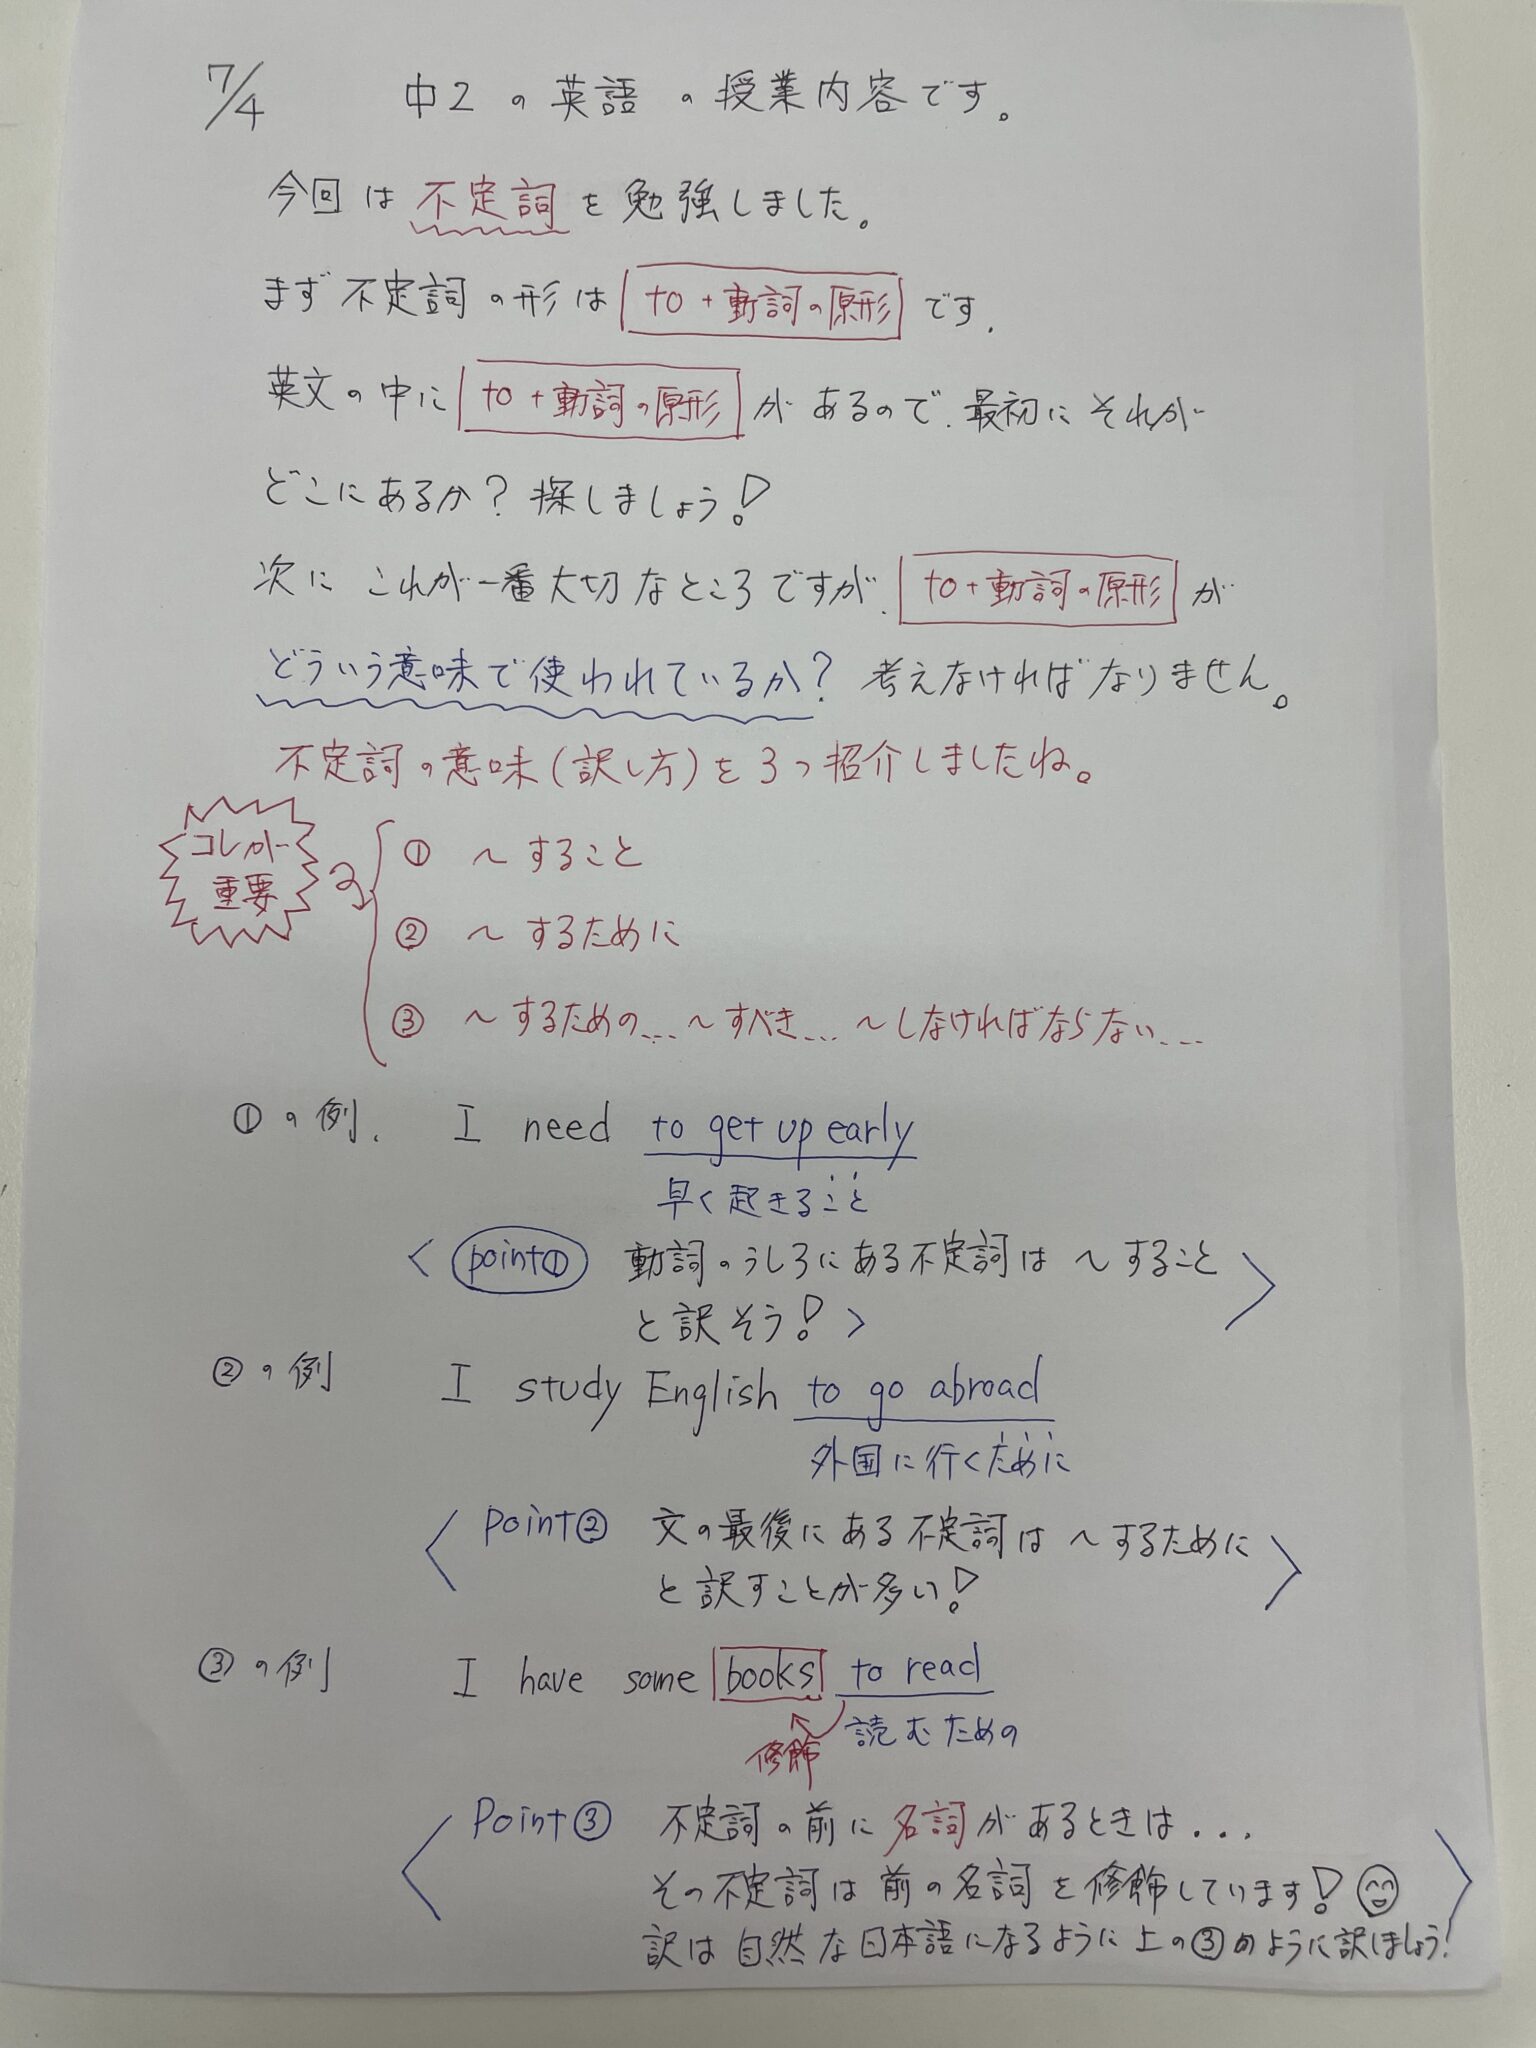 7/4 中2の英語の授業内容です。
今回は不定詞を勉強しました。
まず不定詞の形は to+動詞の原形 です.
英文の中に to+動詞の原形 があるので.最初にそれが
どこにあるか?探しましょう!
次にこれが一番大切なところですが. to+動詞の原形 が
どういう意味で使われているか?考えなければなりません。
不定詞の意味(訳し方)を3つ紹介しましたね。
コレが
重要
① 〜すること
② 〜するために
③ 〜するための... 〜すべき... 〜しなければならない...
①の例. I need to get up early
早く起きること
<point① 動詞のうしろにある不定詞は 〜すること>
と訳そう!>
②の例 I study English to go abroad
外国に行くために
<point② 文の最後にある不定詞は 〜するために>
と訳すことが多い!
③の例 I have some books to read
修飾 読むための
<Point③ 不定詞の前に名詞があるときは...
その不定詞は前の名詞を修飾しています!>
訳は自然な日本語になるように上の③のように訳しましょう!